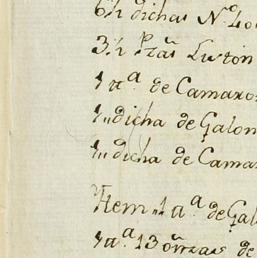 6½ dichas Nº 400
3½ Pzãs Listòn
1 nª. de Camaro
1„ dicha de Galon
1„ dicha de Cama
Item„ 1 aª. de Gal
1 aª. 13 onzas de